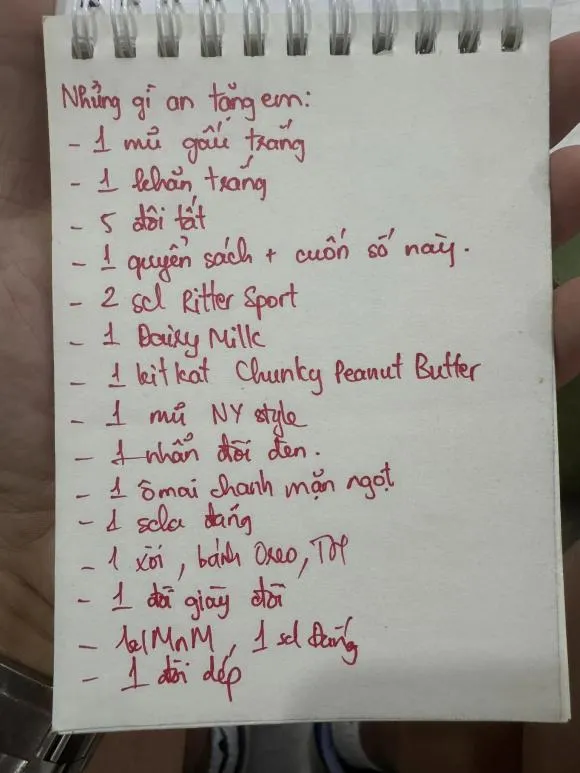 Những gì an tặng em:
- 1 mũ gấu trắng
- 1 khăn trắng
- 5 đôi tất
- 1 quyển sách + cuốn sổ này.
- 2 scl Ritter Sport
- 1 Dairy Milk
- 1 kitkat Chunky Peanut Butter
- 1 mũ NY style
- 1 nhẫn đôi đen.
- 1 ômai chanh mặn ngọt
- 1 scla đắng
- 1 xôi, bánh Oreo,
- 1 đôi giày đôi
- 1 kẹ MnM, 1 scl Đắng
- 1 đôi dép